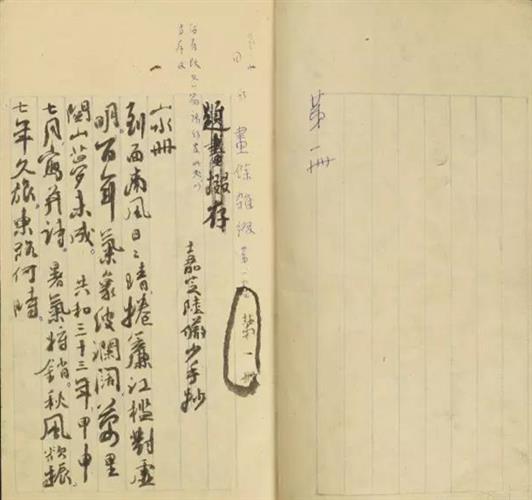 第一冊
畫餘雜綴
第一冊
題畫掇存
嘉定陸儼少手抄
山水冊
到西南風日〻晴捲簾江檻對虛
明。百年氣象波瀾闊。萬里
關山夢未成。共和三十三年甲申
七月寫并詩。暑氣銷。秋風欲振。
七年久旅。東路何時。